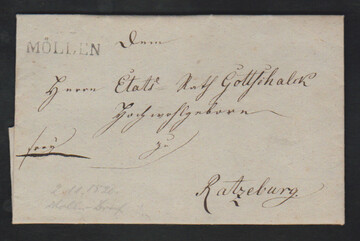 MÖLLEN
Dem
Herrn Etats Rath Gottschalck
Hochwohlgeboren
zu
frey
Ratzeburg.